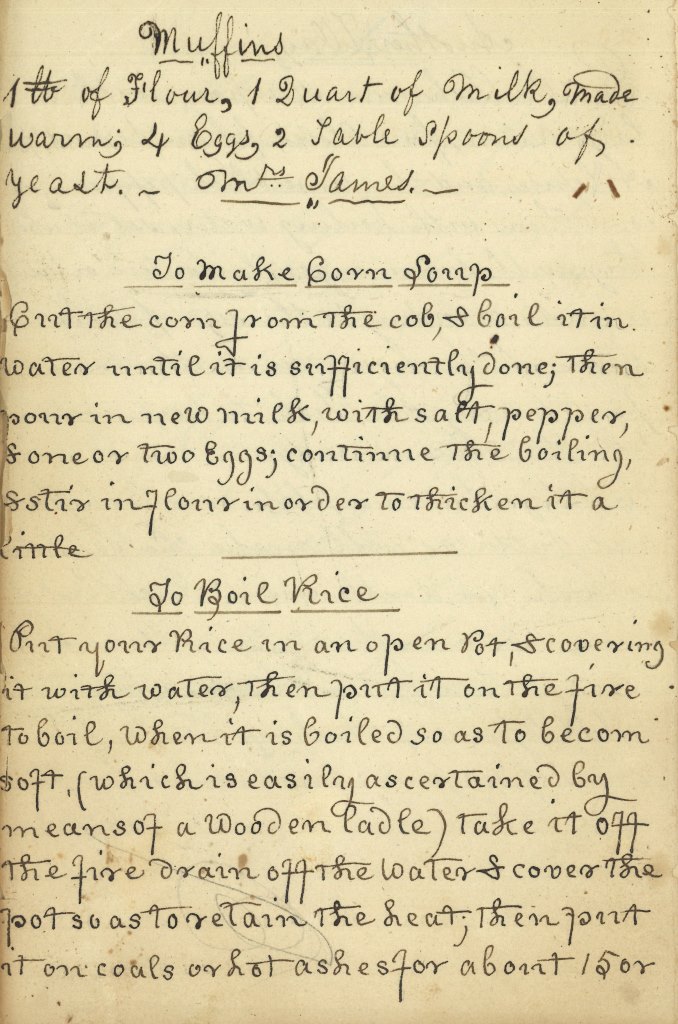 Muffins
1 lb of Flour, 1 Quart of Milk, made
warm; 4 Eggs, 2 Table Spoons of
yeast. – Mrs James. –
To Make Corn Soup
Cut the corn from the cob, & boil it in
water until it is sufficiently done; then
pour in new milk, with salt, pepper,
& one or two Eggs; continue the boiling,
& stir in flour in order to thicken it a
little
To Boil Rice
Put your Rice in an open Pot, & covering
it with water, then put it on the fire
to boil, when it is boiled so as to becom
soft, (which is easily ascertained by
means of a Wooden ladle) take it off
the fire drain off the water & cover the
pot so as to retain the heat; then put
it on coals or hot ashes for about 15 or